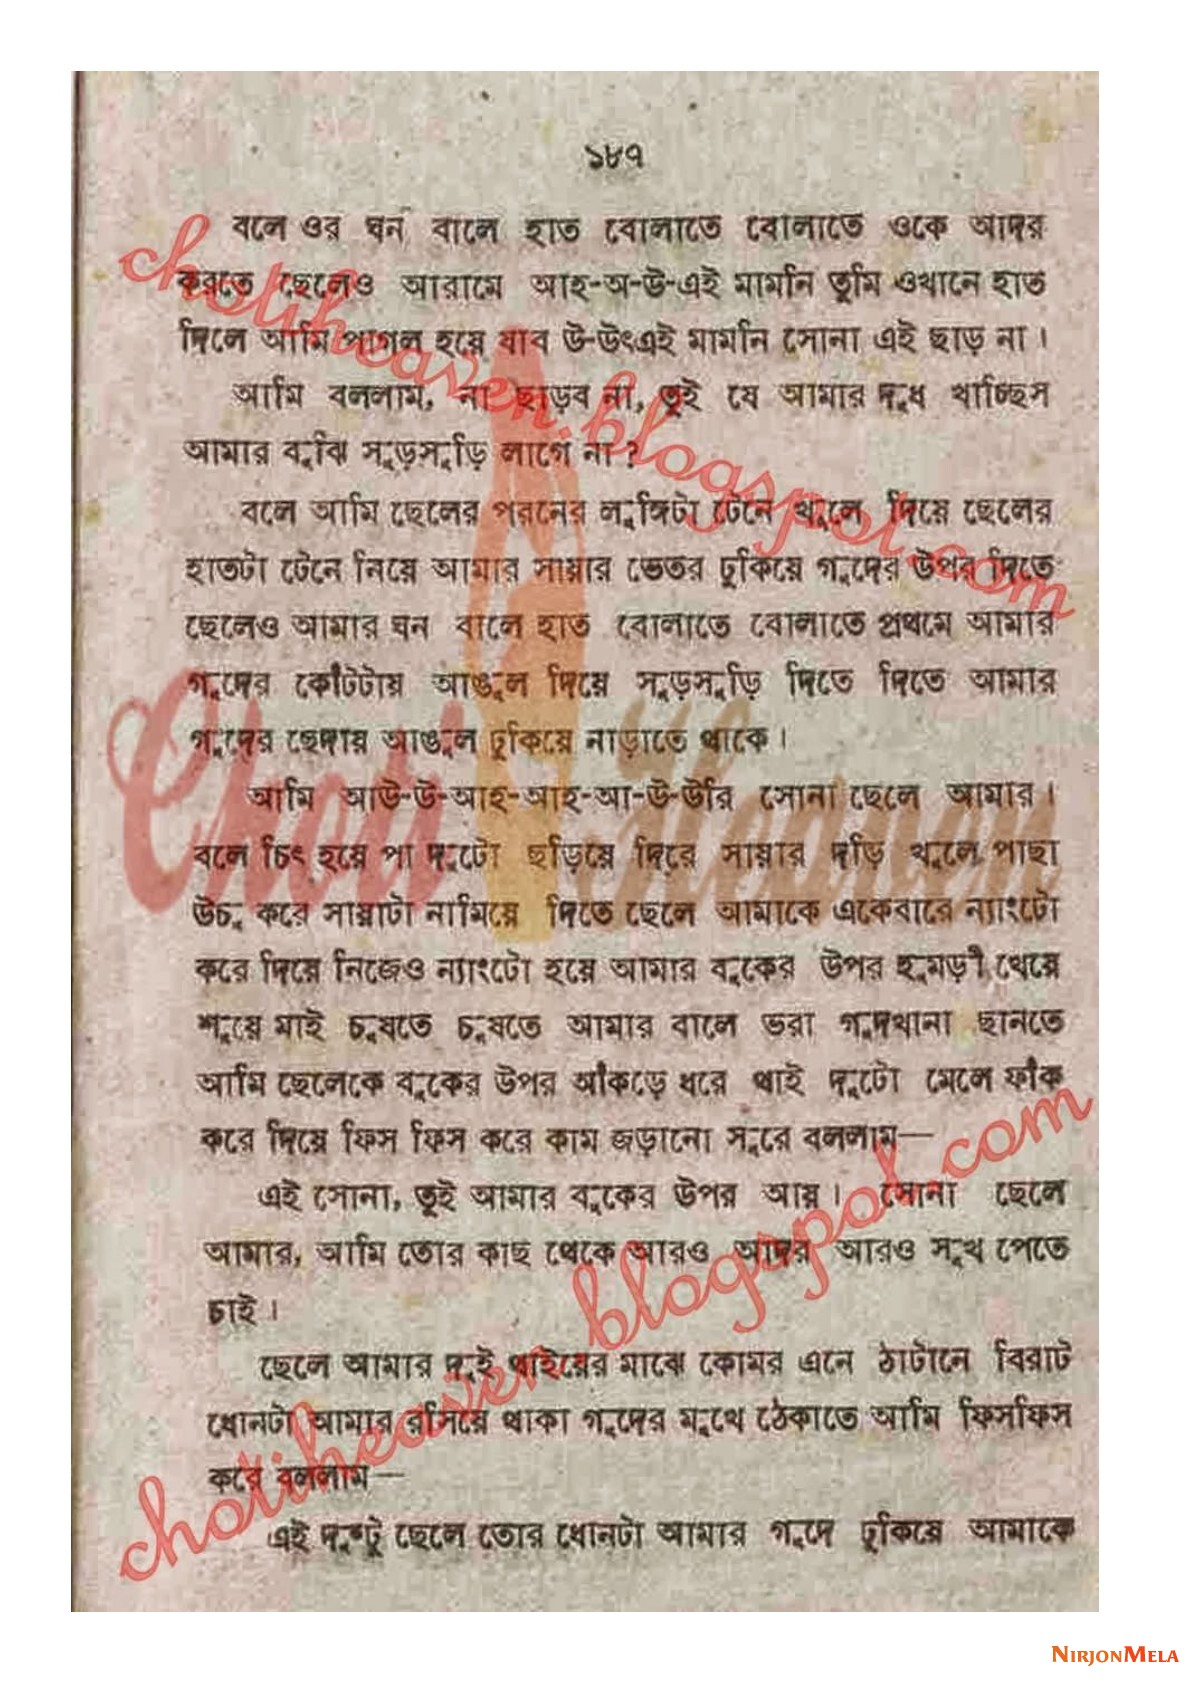 ১৮৭
বলে ওর ঘন বালে হাত বোলাতে বোলাতে ওকে আদর
করতে ছেলেও আরামে আহ-অ-উ-এই মামনি তুমি ওখানে হাত
দিলে আমি পাগল হয়ে যাব উ-উৎএই মামনি সোনা এই ছাড় না।
আমি বললাম, না ছাড়ব না, তুই যে আমার দুধ খাচ্ছিস
আমার বুঝি সুড়সুড়ি লাগে না?
বলে আমি ছেলের পরনের লুঙ্গিটা টেনে খুলে দিয়ে ছেলের
হাতটা টেনে নিয়ে আমার সায়ার ভেতর ঢুকিয়ে গুদের উপর দিতে
ছেলেও আমার ঘন বালে হাত বোলাতে বোলাতে প্রথমে আমার
গুদের কোঁটটায় আঙুল দিয়ে সুড়সুড়ি দিতে দিতে আমার
গুদের ছেদায় আঙুল ঢুকিয়ে নাড়াতে থাকে।
আমি আউ-উ-আহ-আহ-আ-উ-উরি সোনা ছেলে আমার।
বলে চিৎ হয়ে পা দুটো ছড়িয়ে দিরে সায়ার দড়ি খুলে পাছা
উচু করে সায়াটা নামিয়ে দিতে ছেলে আমাকে একেবারে ন্যাংটো
করে দিয়ে নিজেও ন্যাংটো হয়ে আমার বুকের উপর হুমড়ী খেয়ে
শুয়ে মাই চুষতে চুষতে আমার বালে ভরা গুদখানা ছানতে
আমি ছেলেকে বুকের উপর আঁকড়ে ধরে থাই দুটো মেলে ফাঁক
করে দিয়ে ফিস ফিস করে কাম জড়ানো সুরে বললাম—
এই সোনা, তুই আমার বুকের উপর আয়। সোনা ছেলে
আমার, আমি তোর কাছ থেকে আরও আদর আরও সুখ পেতে
চাই।
ছেলে আমার দুই থাইয়ের মাঝে কোমর এনে ঠাটানে বিরাট
ধোনটা আমার রসিয়ে থাকা গুদের মুখে ঠেকাতে আমি ফিসফিস
করে বললাম—
এই দুষ্টু ছেলে তোর ধোনটা আমার গুদে ঢুকিয়ে আমাকে
chotiheaven.blogspot.com
Choti Heaven
chotiheaven.blogspot.com
NIRJONMELA